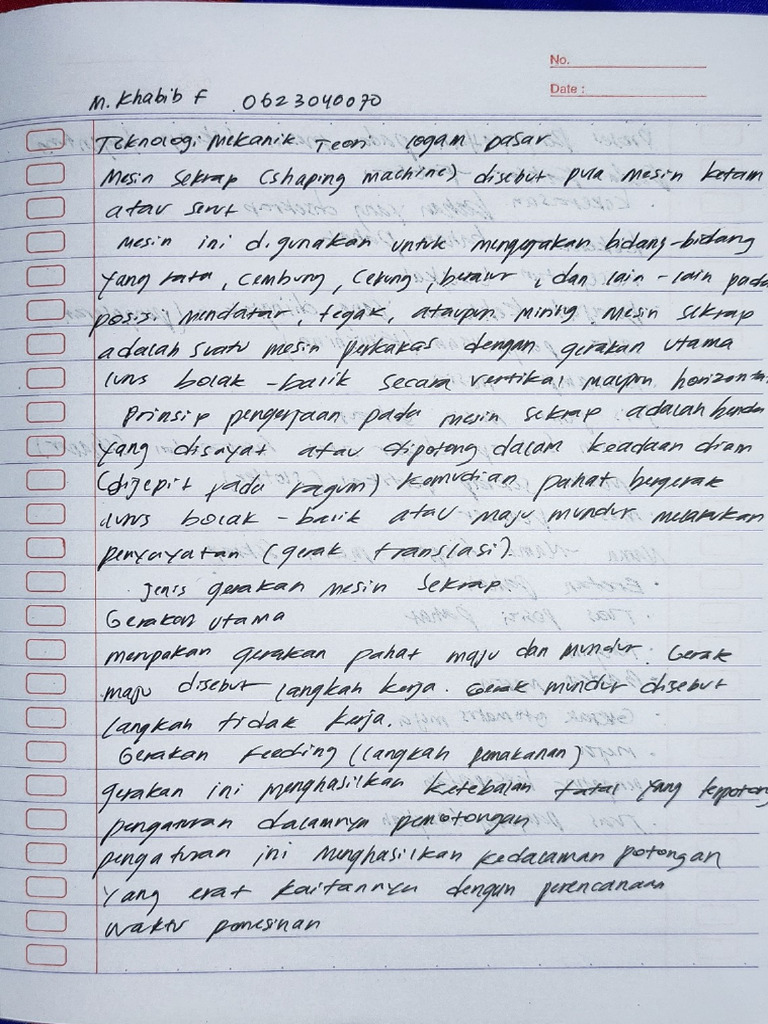 No.
Date :
M. Khabib F 0623040070
Teknologi Mekanik Teori logam dasar
Mesin Sekrap (shaping machine) disebut pula mesin ketam
atau serut
Mesin ini digunakan untuk mengerjakan bidang-bidang
yang rata, cembung, cekung, beralur, dan lain-lain pada
posisi mendatar, tegak, ataupun miring. Mesin sekrap
adalah suatu mesin perkakas dengan gerakan utama
lurus bolak-balik secara vertikal maupun horizontal
Prinsip pengerjaan pada mesin sekrap adalah benda
yang disayat atau dipotong dalam keadaan diam
(dijepit pada ragum) kemudian pahat bergerak
lurus bolak-balik atau maju mundur melakukan
penyayatan (gerak translasi).
Jenis gerakan mesin sekrap.
Gerakan utama
merupakan gerakan pahat maju dan mundur. Gerak
maju disebut langkah kerja. Gerak mundur disebut
langkah tidak kerja.
Gerakan Feeding (langkah pemakanan)
gerakan ini menghasilkan ketebalan tatal yang terpotong
pengaturan dalamnya pemotongan
pengaturan ini menghasilkan kedalaman potongan
yang erat kaitannya dengan perencanaan
waktu pemesinan